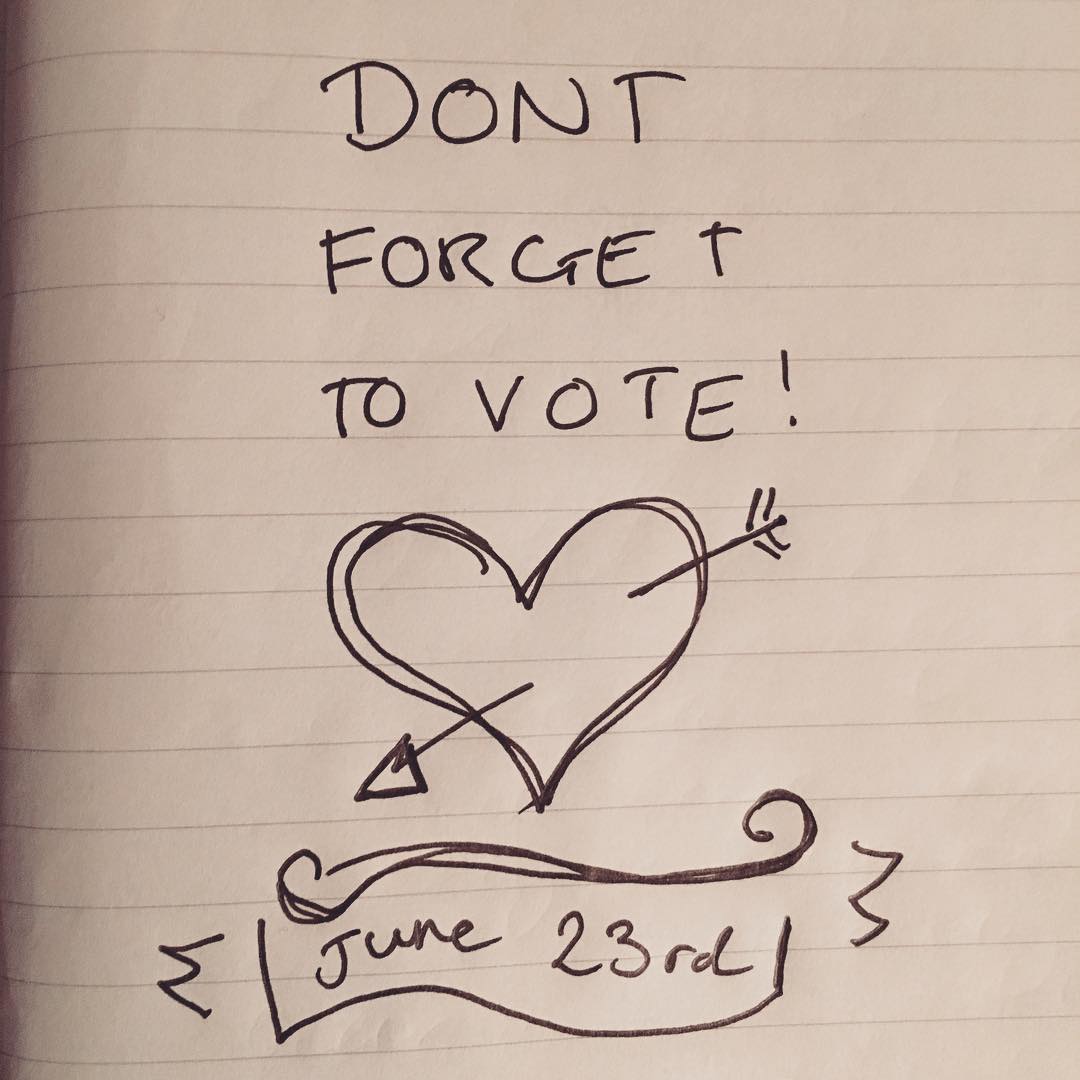 DONT
FORGET
TO VOTE!
June 23rd